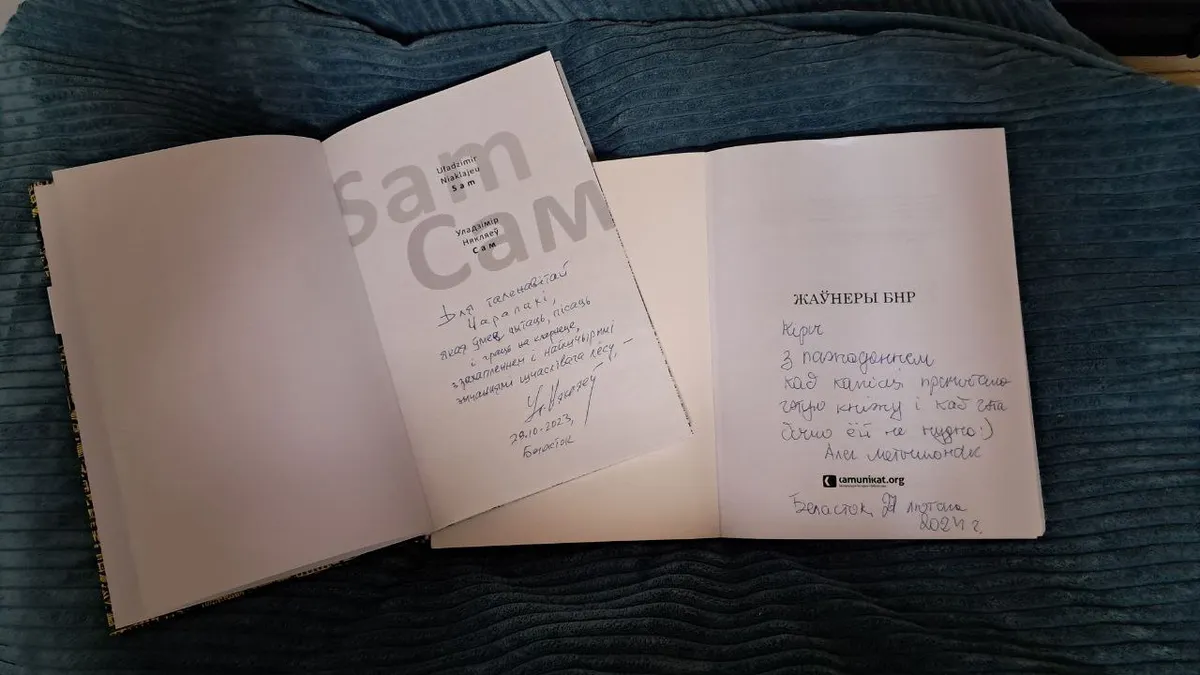 Sam
Сам
Uładzimir
Niaklajeu
Sam
Уладзімір
Някляеў
Сам
Для таленавітай
якая ўмее чытаць, пісаць
і граць на кларнеце,
з захапленнем і найшчырымі
шчаслівага лёсу, —
29.10.2023,
Беласток
ЖАЎНЕРЫ БНР
Кіры
з пажаданнем
каб калісці прачытала
гэтую кніжку і каб гэта
было ёй не нудна:)
Алег Латышонак
kamunikat.org
Беласток, лютага
2024 г.